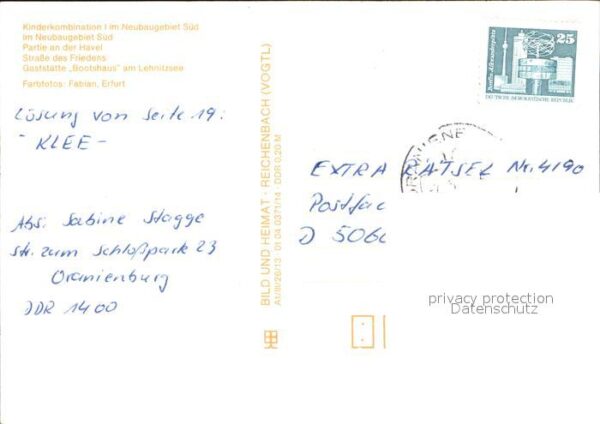 Kinderkombination I im Neubaugebiet Süd
Im Neubaugebiet Süd
Partie an der Havel
Straße des Friedens
Gaststätte „Bootshaus" am Lehnitzsee
Farbfotos: Fabian, Erfurt
Lösung von Seite 19:
- KLEE -
Abs: Sabine Stagge
Str. zum Schloßpark 23
Oranienburg
DDR 1400
BILD UND HEIMAT · REICHENBACH (VOGTL)
A1/III/26/13 01 04 0371/14 · DDR 0,20 M
25
Berlin, Alexanderplatz
DEUTSCHE DEMOKRATISCHE REPUBLIK
EXTRA RÄTSEL Nr. 4190
Postfac
D 506
privacy protection
Datenschutz